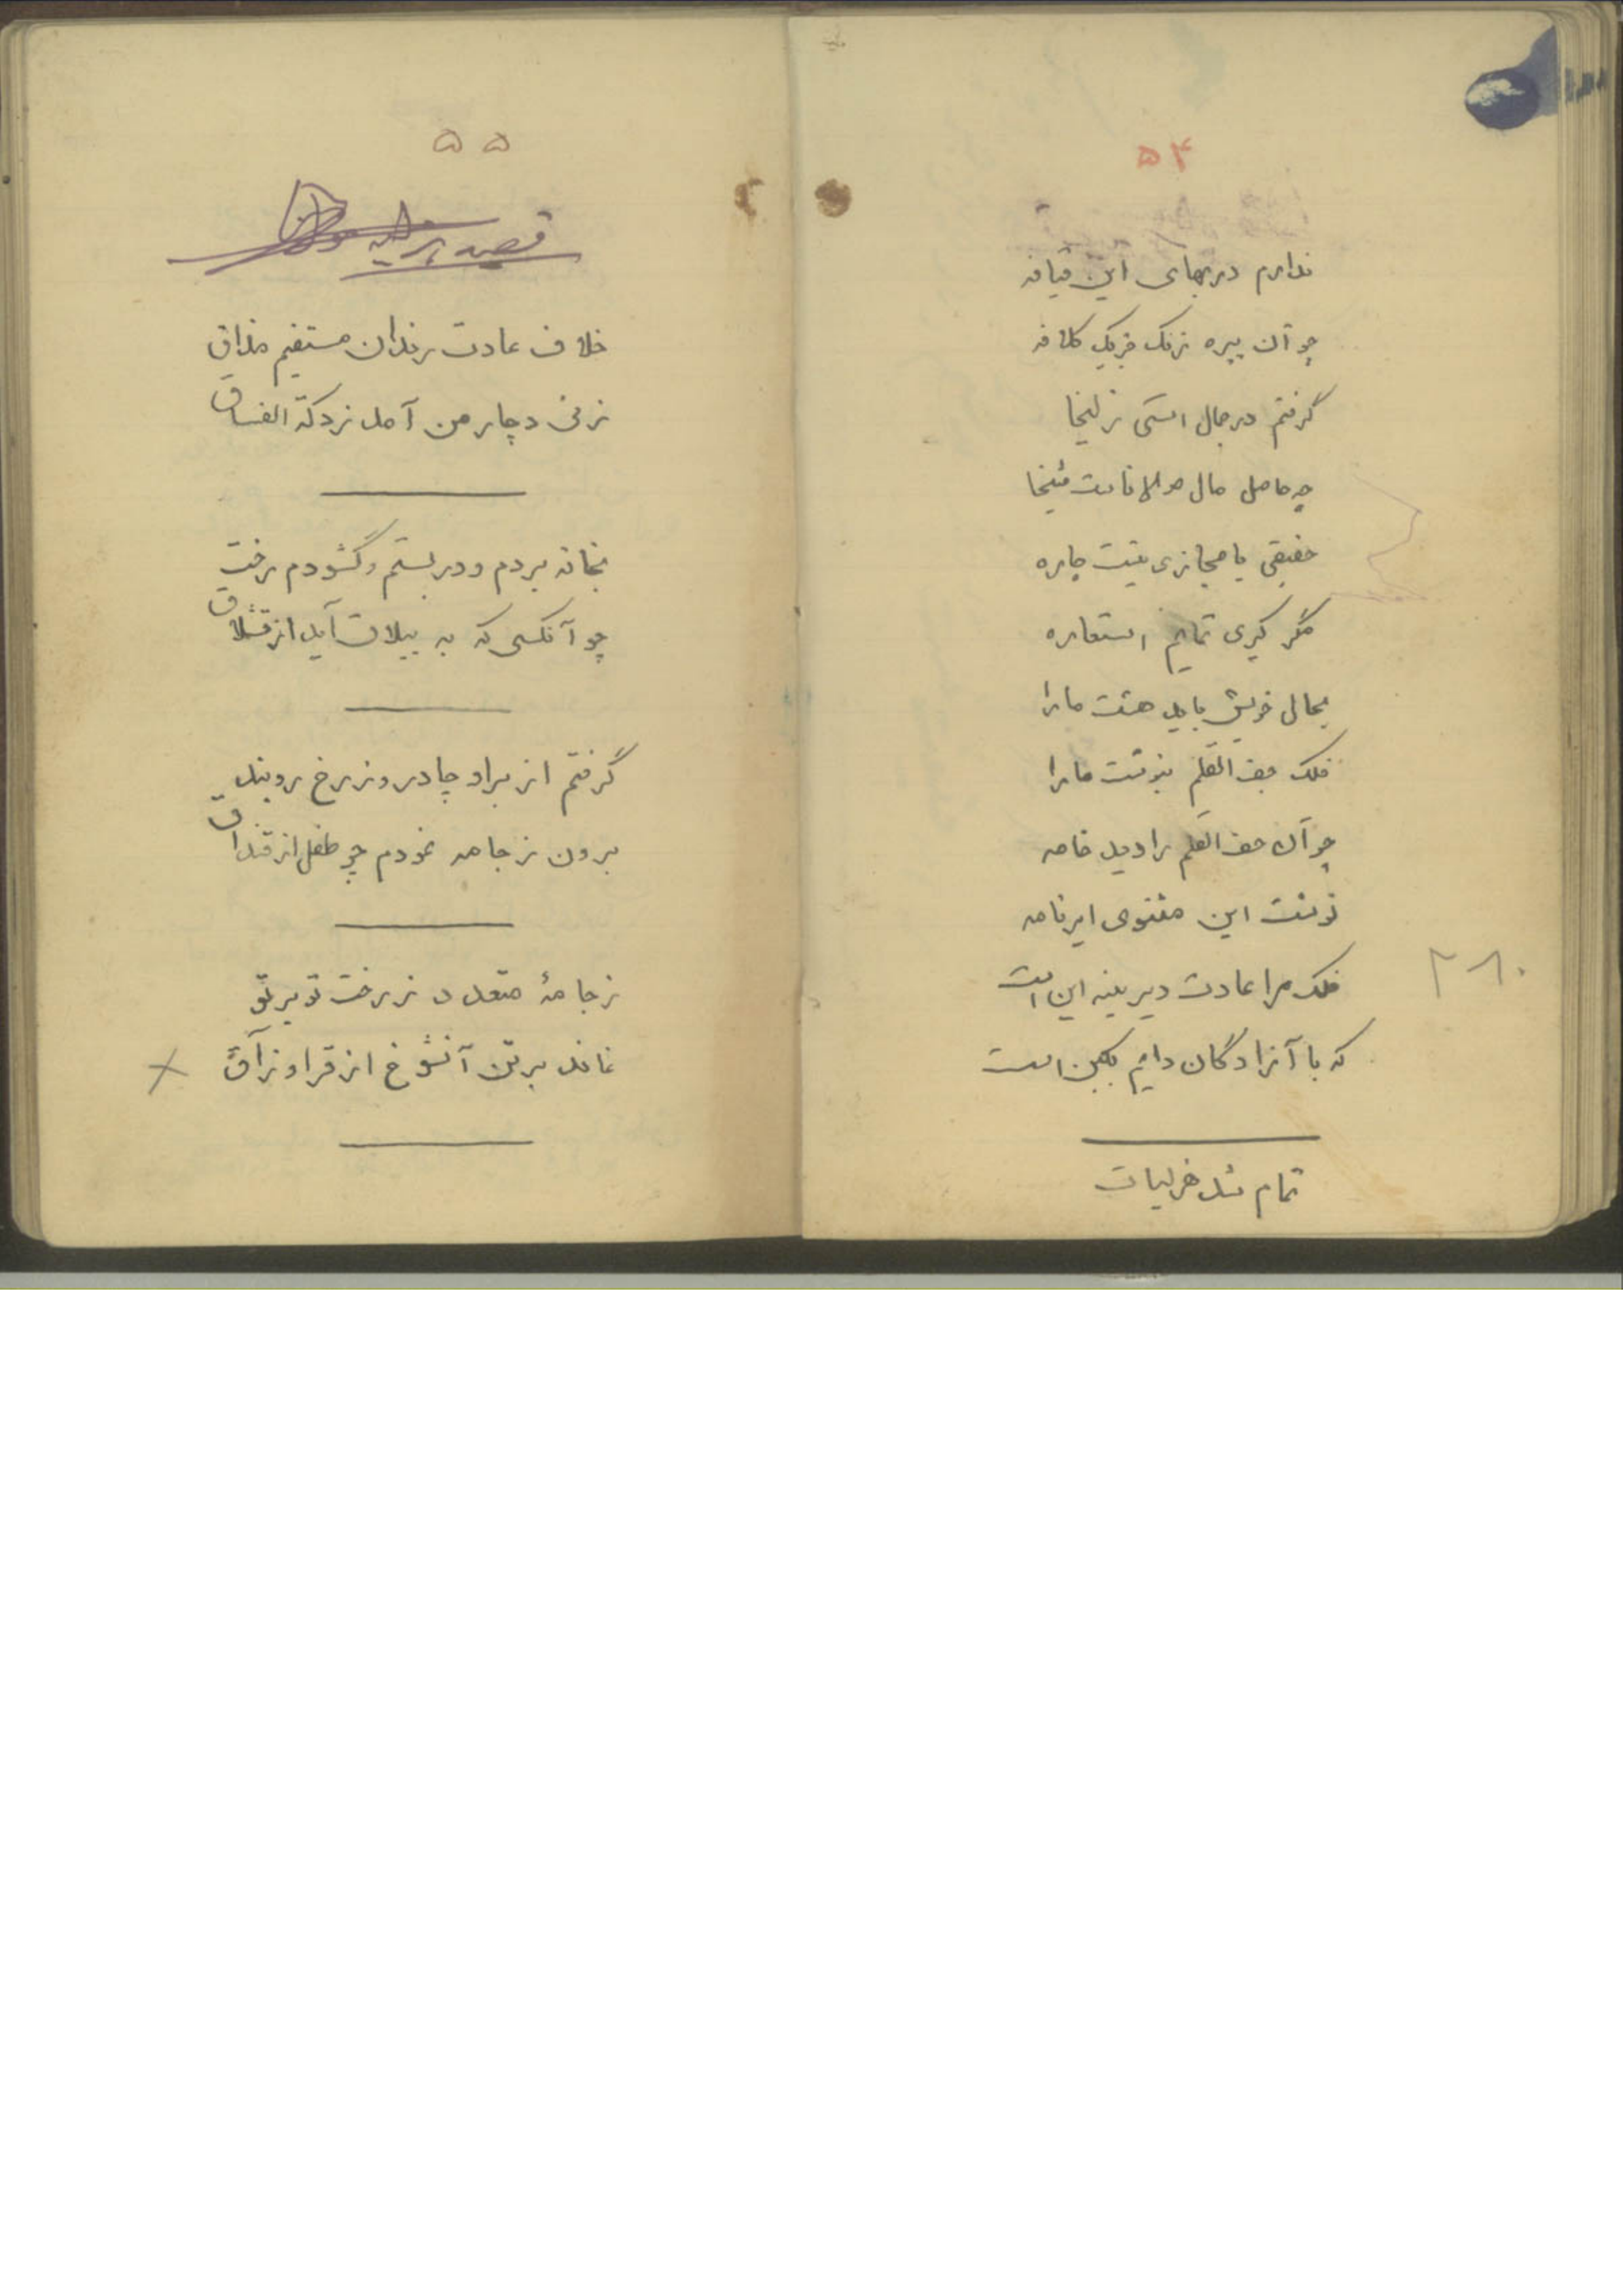 ۵۴
ندارم در بهای این قیافه
چو آن پیره زنک جز یک کلافه
گرفتم در جمال استی زلیخا
چه حاصل مال مولانات میخا
حقیقی یا مجازی نیست چاره
مگر کیری نمایم استعاره
بحال خویش باید هشت ما را
فلک جف القلم بنوشت ما را
چو آن جف القلم را دید خامه
نوشت این مثنوی ایرنامه
فلک را عادت دیرینه این است
که با آزادگان دایم بکین است
تمام شد هزلیات
۲۸۰
۵۵
قصیده
خلاف عادت رندان مستقیم مذاق
زنی دچار من آمد ز دکة الفساق
بخانه بردم و در بستم و گشودم رخت
چو آنکسی که به ییلاق آید از قشلاق
گرفتم از بر او چادر و ز رخ روبند
برون ز جامه نمودم چو طفل از قنداق
ز جامهٔ متعدد ز رخت تو بر تو
نماند بر تن آنشوخ از قرا و ز آق